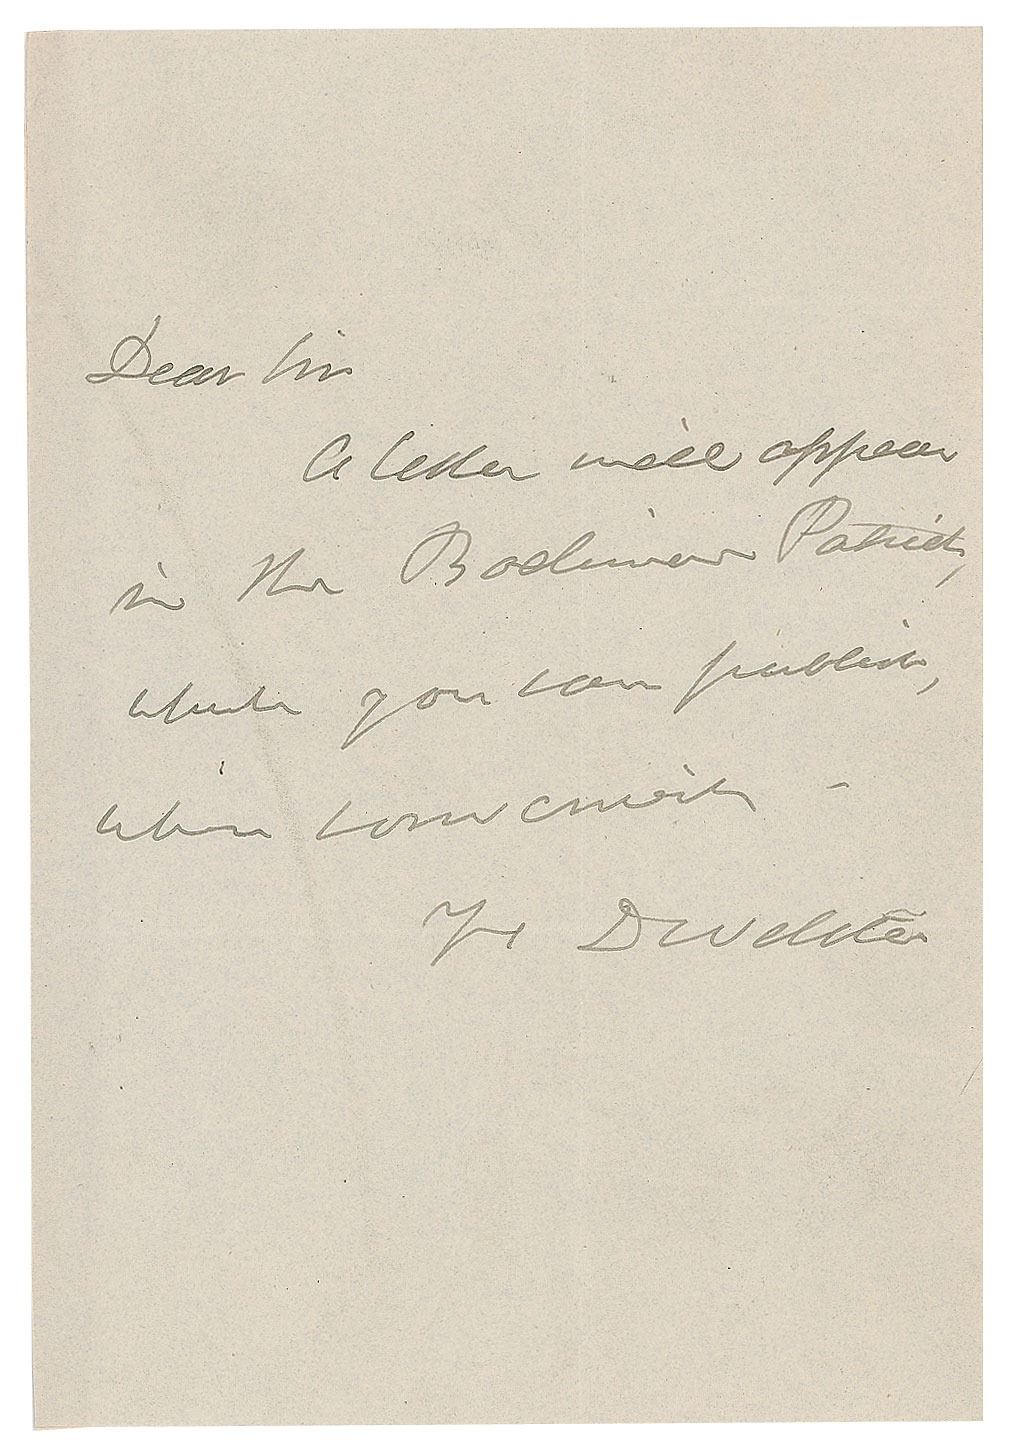 Dear Sir
A letter will appear
in the Baltimore Patriot,
which you can publish,
when convenient -
Yrs D Webster